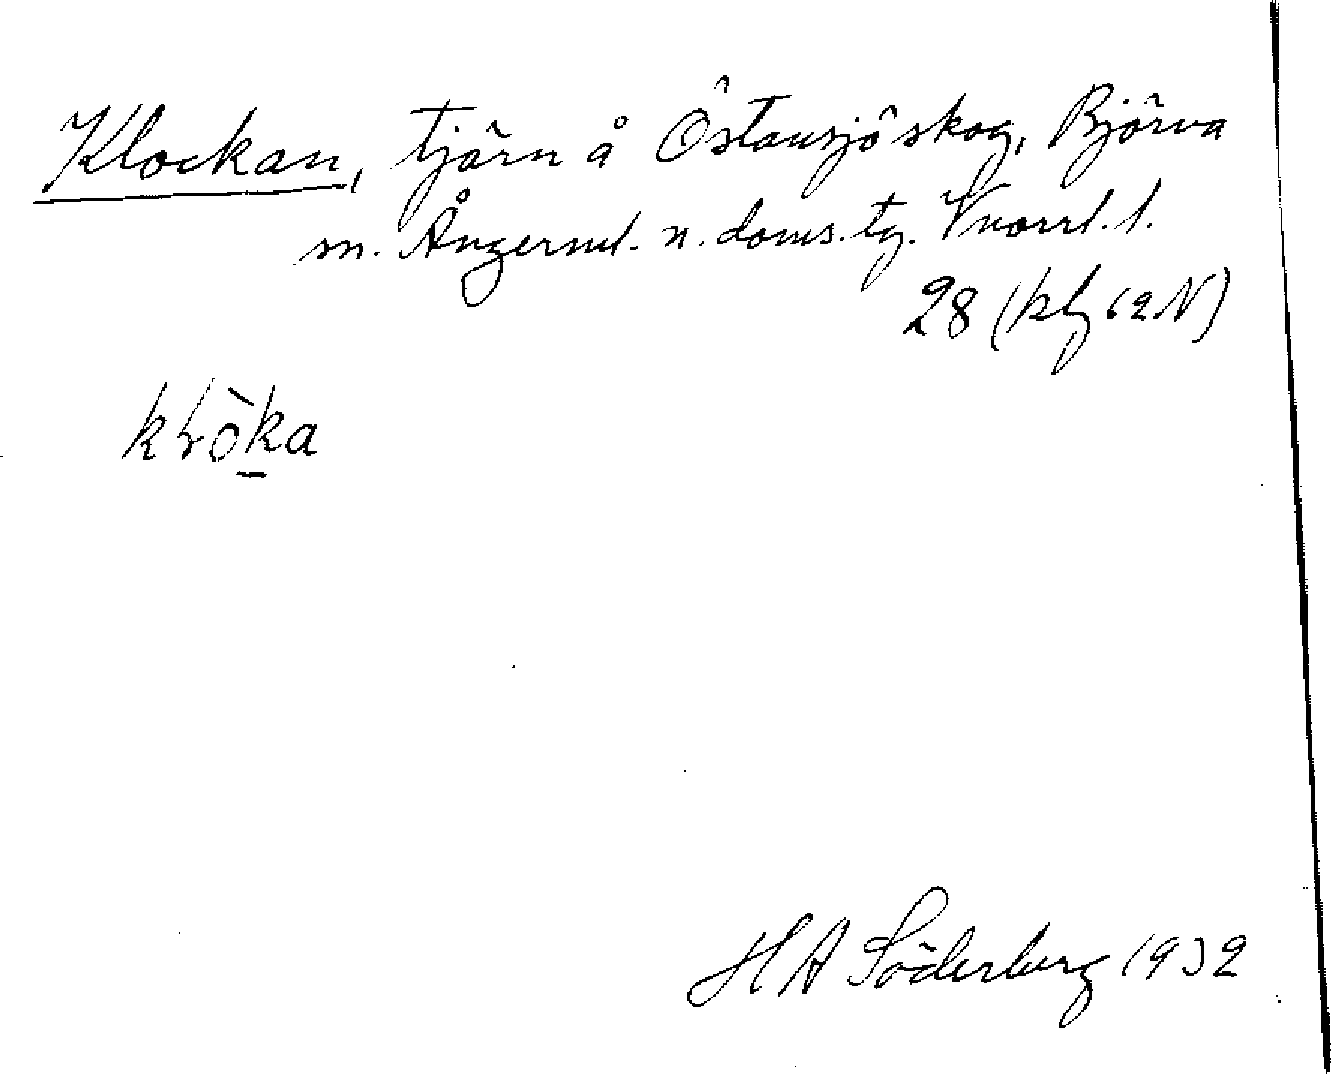 Klockan, tjärn å Östansjö skog, Björna
sn. Ångerml. n. doms. tg. Vnorrl. l.
28 (kbl 62 N)
klòka
H A Söderberg 1932